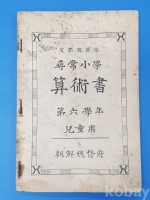 文部省著作
尋常小學
算術書
第六學年
兒童用
朝鮮總督府
kobay